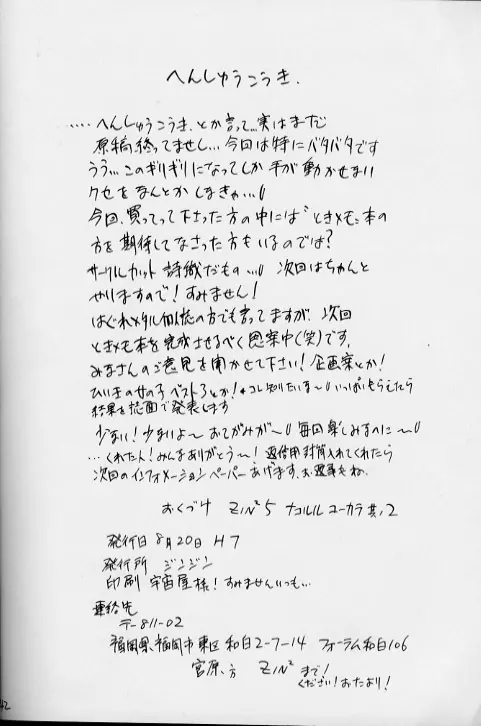 へんしゅうこうき.
‥‥へんしゅうこうき.とか言って…実はまだ
原稿終ってませし…今回は特にバタバタです
うう…このギリギリになってしか手が動かせまい
クセをなんとかしまきゃ…
今回、買ってって下さった方の中には"ときメモ"本の
方を期待してなさった方もいるのでは?
サークルカット詩織だもの… 次回はちゃんと
やりますので!すみません!
はぐれメタルの方でも言ってますが、次回
ときメモ本を完成させるべく思案中(笑)です。
みなさんのご意見を聞かせて下さい!企画案とか!
ひいきの女の子ベスト3とか!←コレ知りたいま〜 いっぱいもらえたら
結果を誌面で発表します
少まい!少まいよ〜おてがみが〜 毎回楽しみまのに〜
…くれた人!みんなありがとう〜!返信用封筒入れてくれたら
次回のインフォメーションペーパーあげます。お返事もね。
おくづけ ZIN² 5 ナコルル ユーカラ其ノ2
発行日 8月20日 H7
発行所 ジンジン
印刷 宇宙屋様!すみませんいつも…
連絡先
〒811-02
福岡県、福岡市東区和白2-7-14 フォーラム和白106
宮原、方 ZIN² まで!
ください!おたより!
42